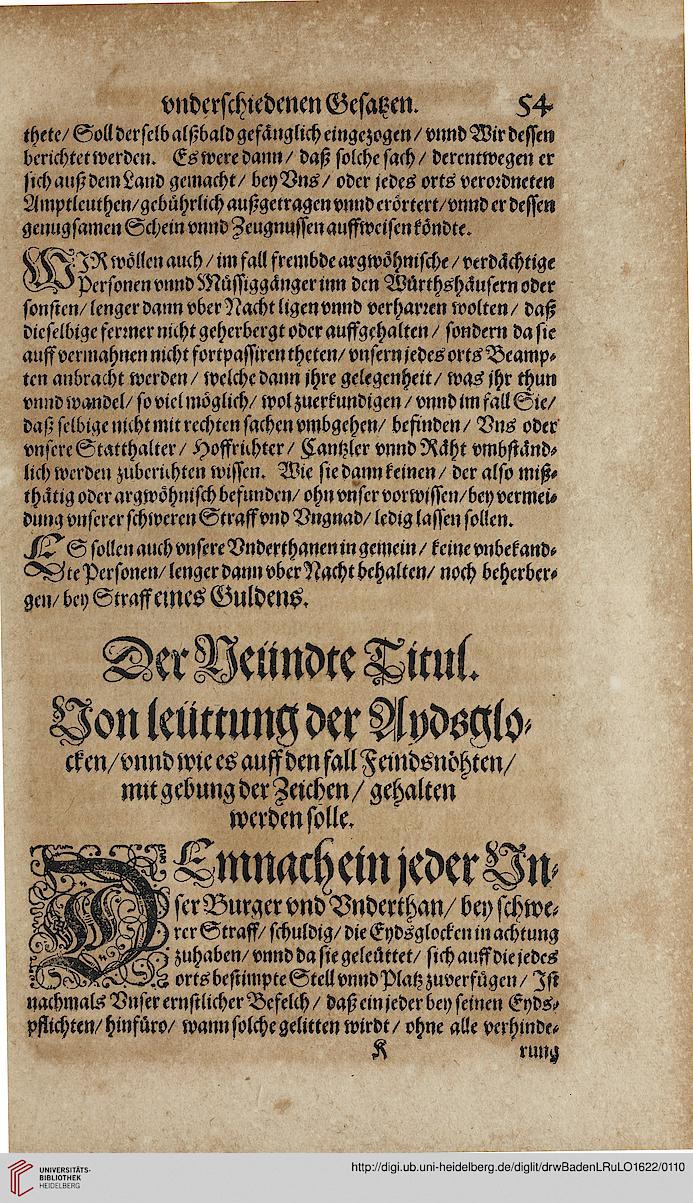 vnderschiedenen Gesatzen. 54
thete/ Soll derselb alßbald gefänglich eingezogen / vnnd Wir dessen
berichtet werden. Es were dann / daß solche sach / derentwegen er
sich auß dem Land gemacht/ bey Vns / oder jedes orts verordneten
Amptleuthen/ gebührlich außgetragen vnnd erörtert/ vnnd er dessen
genugsamen Schein vnnd Zeugnussen auffweisen köndte.
WIR wöllen auch / im fall frembde argwöhnische / verdächtige
Personen vnnd Müssiggänger inn den Würthshäusern oder
sonsten/ lenger dann vber Nacht ligen vnnd verharren wolten / daß
dieselbige ferrner nicht geherbergt oder auffgehalten / sondern da sie
auff vermahnen nicht fortpassiren theten/ vnsern jedes orts Beamp-
ten anbracht werden / welche dann jhre gelegenheit / was jhr thun
vnnd wandel/ so viel möglich/ wol zuerkundigen / vnnd im fall Sie/
daß selbige nicht mit rechten sachen vmbgehen/ befinden / Vns oder
vnsere Statthalter / Hoffrichter / Cantzler vnnd Räht vmbständ-
lich werden zuberichten wissen. Wie sie dann keinen / der also miß-
thätig oder argwöhnisch befunden/ ohn vnser vorwissen / bey vermei-
dung vnserer schweren Straff vnd Vngnad/ ledig lassen sollen.
ES sollen auch vnsere Vnderthanen in gemein / keine vnbekand-
te Personen/ lenger dann vber Nacht behalten/ noch beherber-
gen/ bey Straff eines Guldens.
Der Neündte Titul.
Von leüttung der Aydsglo-
cken/ vnnd wie es auff den fall Feindsnöhten/
mit gebung der Zeichen / gehalten
werden solle.
DEmnach ein jeder Vn-
ser Burger vnd Vnderthan/ bey schwe-
rer Straff/ schuldig/ die Eydsglocken in achtung
zuhaben/ vnnd da sie geleüttet/ sich auff die jedes
orts bestimpte Stell vnnd Platz zuverfügen / Ist
nachmals Vnser ernstlicher Befelch / daß ein jeder bey seinen Eyds-
pflichten/ hinfüro/ wann solche gelitten wirdt / ohne alle verhinde-
K rung
UNIVERSITÄTS-
BIBLIOTHEK
HEIDELBERG
http://digi.ub.uni-heidelberg.de/diglit/drwBadenLRuLO1622/0110